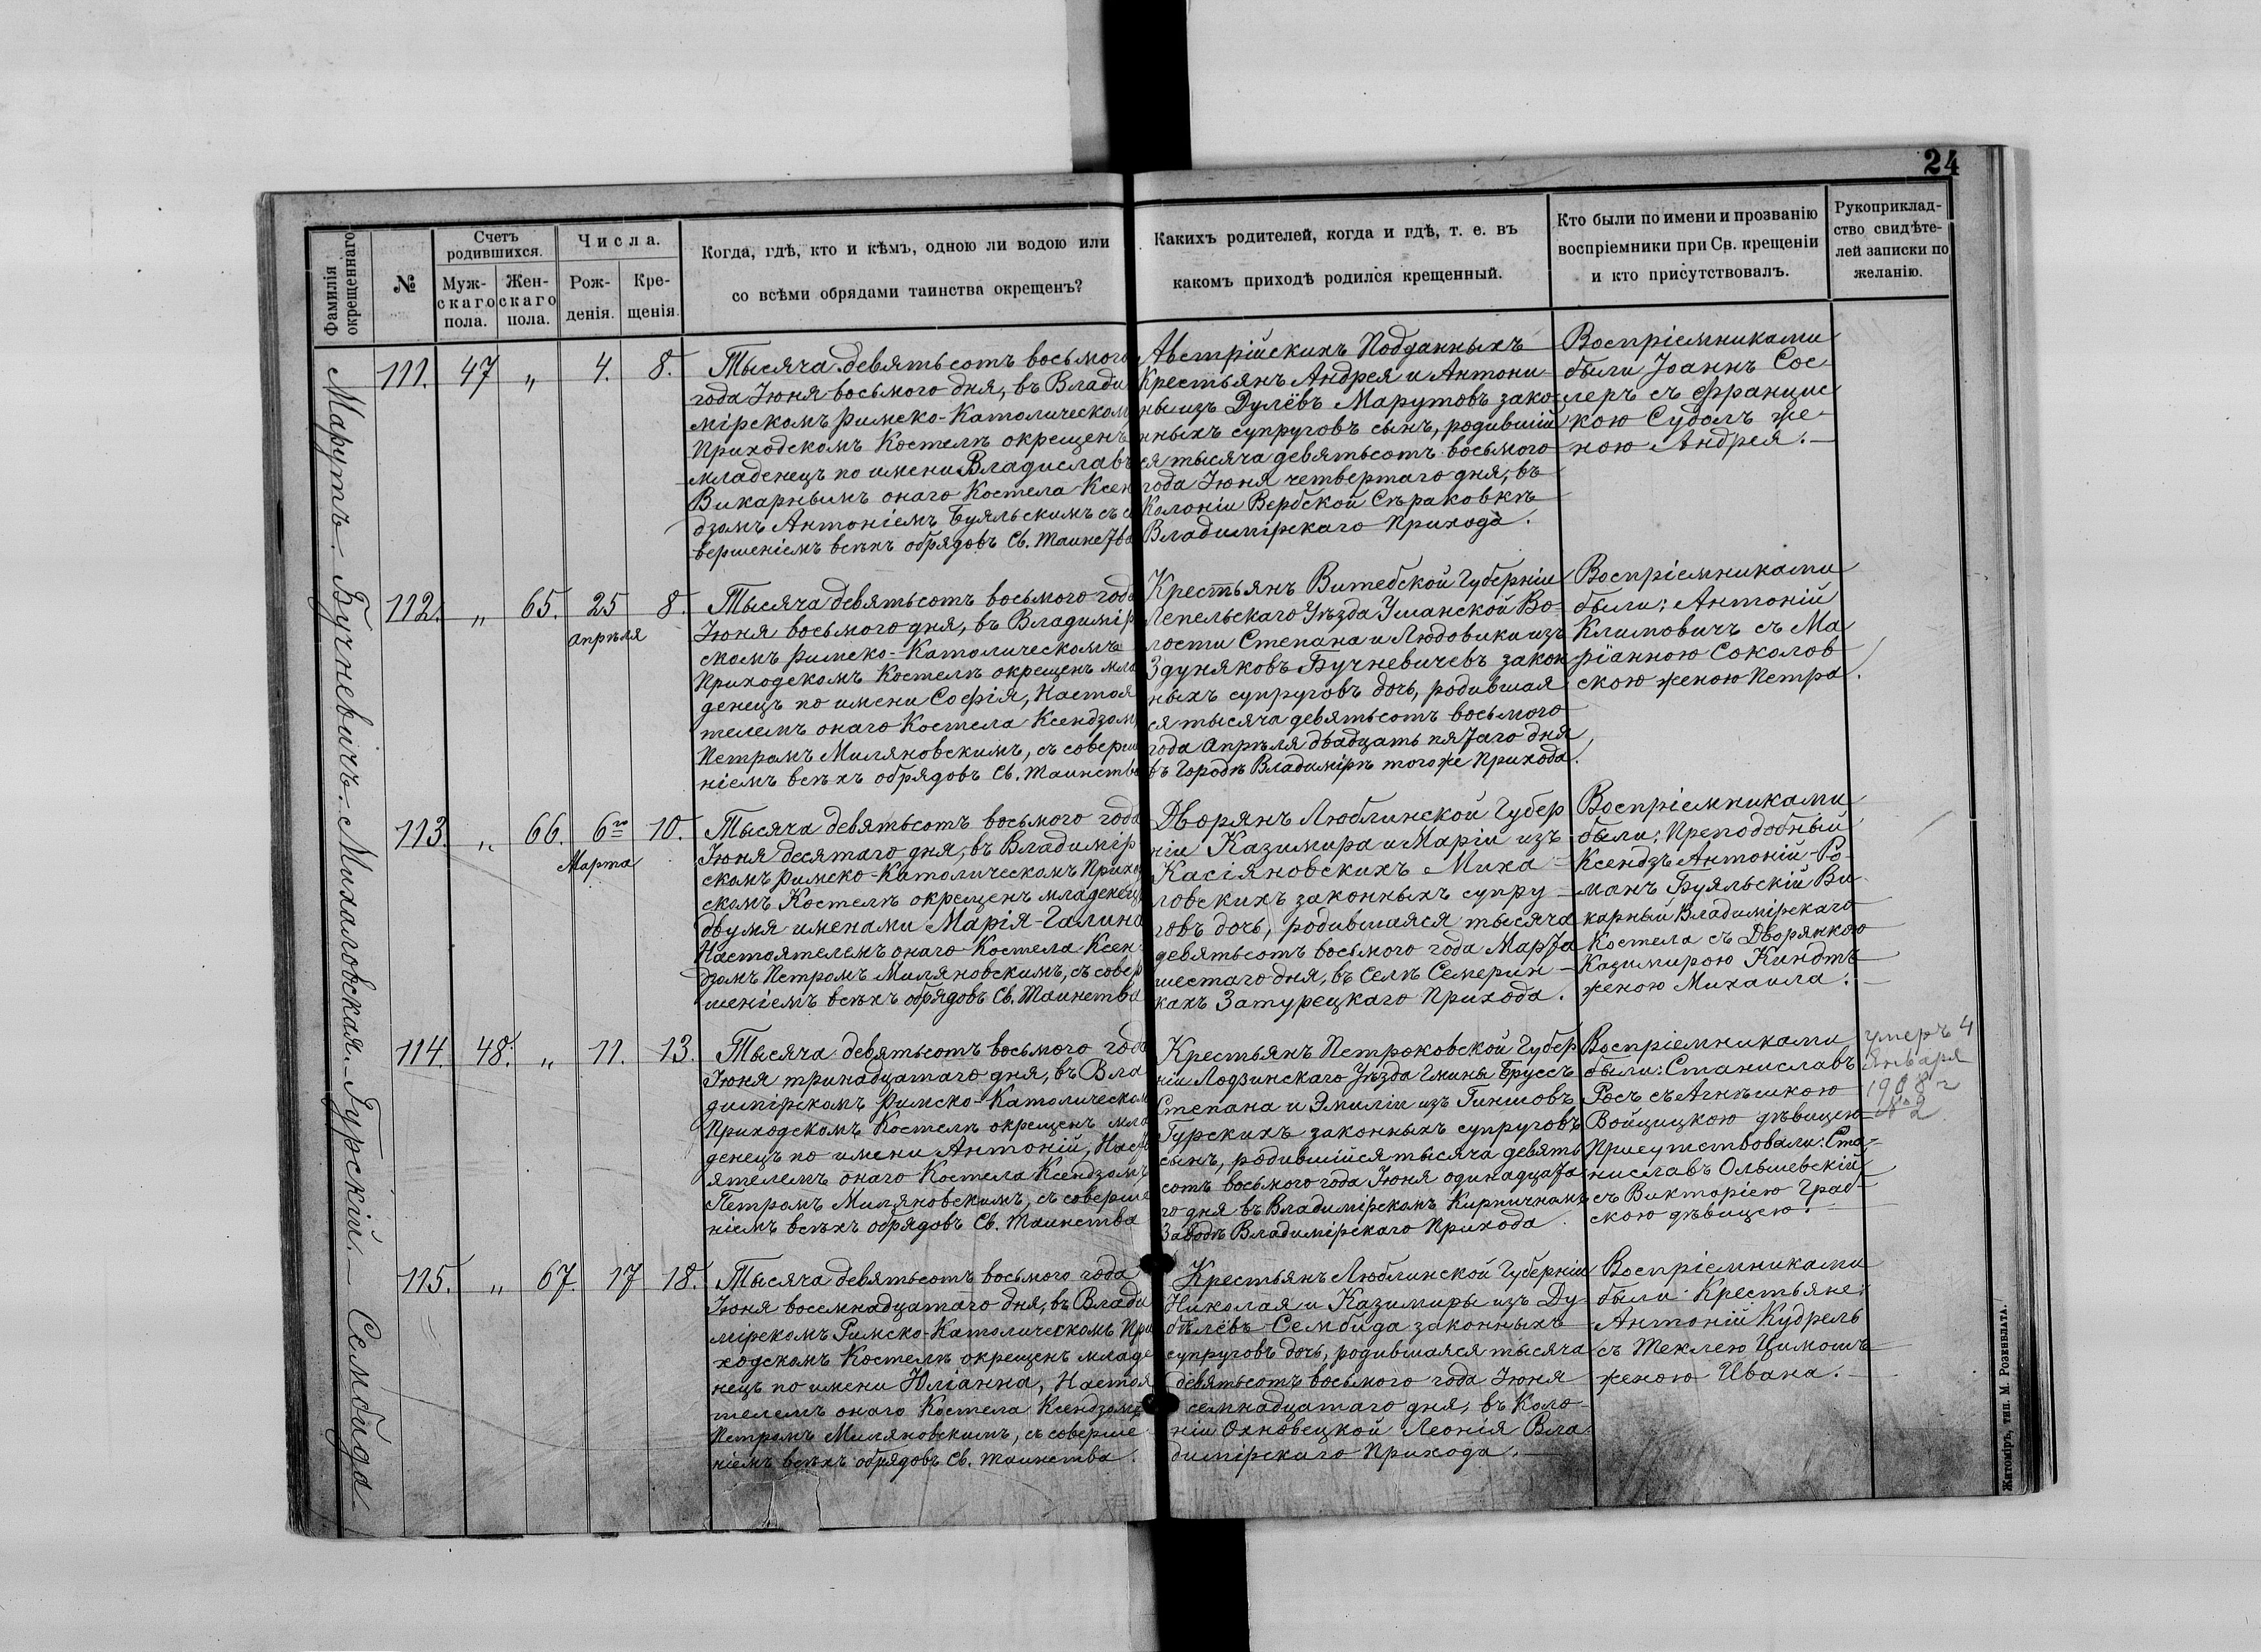 24
Фамилія
окрещеннаго
№
Счетъ
родившихся.
Муж-
скаго
пола.
Жен-
скаго
пола.
Числа.
Рож-
денія.
Кре-
щенія.
Когда, гдѣ, кто и кѣмъ, одною ли водою или
со всѣми обрядами таинства окрещенъ?
Какихъ родителей, когда и гдѣ, т. е. въ
какомъ приходѣ родился крещенный.
Кто были по имени и прозванію
воспріемники при Св. крещеніи
и кто присутствовалъ.
Рукоприклад-
ство свидѣте-
лей записки по
желанію.
Марутъ. Бучневичъ. Михаловская. Гурскій. — Сембида
111. 47 „ 4. 8.
Тысяча девятьсотъ восьмого
года Іюня восьмого дня, въ Влади
мірскомъ Римско-Католическом
Приходскомъ Костелѣ окрещенъ
младенецъ по имени Владиславъ
Викарнымъ онаго Костела Ксен
дзомъ Антоніемъ Буяльскимъ съ со
вершеніемъ всѣхъ обрядовъ Св. Таинства
Австрійскихъ Подданныхъ
Крестьянъ Андрея и Антони-
ны изъ Дулёвъ Марутовъ зако-
нныхъ супруговъ сынъ, родившій
ся тысяча девятьсотъ восьмого
года Іюня четвертаго дня, въ
Колоніи Вербской Сѣраковкѣ
Владимірскаго Прихода.
Воспріемниками
были Іоаннъ Сос-
леръ съ Францис
кою Судолъ же-
ною Андрея. —
112. „ 65. 25 8.
апрѣля
Тысяча девятьсотъ восьмого года
Іюня восьмого дня, въ Владимір
скомъ Римско-Католическомъ
Приходскомъ Костелѣ окрещенъ мла
денецъ по имени Софія, Настоя
телемъ онаго Костела Ксендзомъ
Петромъ Миляновскимъ, съ соверше
ніемъ всѣхъ обрядовъ Св. Таинства
Крестьянъ Витебской Губерніи
Лепельскаго Уѣзда Ушанской Во-
лости Степана и Людовики изъ
Здуняковъ Бучневичевъ закон
ныхъ супруговъ дочь, родившая
ся тысяча девятьсотъ восьмого
года Апрѣля двадцать пятаго дня,
въ Городѣ Владимірѣ того же Прихода.
Воспріемниками
были: Антоній
Климовичъ съ Ма
ріанною Соколов
скою женою Петра.
113. „ 66. 6го 10.
Марта
Тысяча девятьсотъ восьмого года
Іюня десятаго дня, въ Владимір
скомъ Римско-Католическомъ Приход
скомъ Костелѣ окрещенъ младенецъ
двумя именами Марія-Галина
Настоятелемъ онаго Костела Ксен-
дзомъ Петромъ Миляновскимъ, съ совер
шеніемъ всѣхъ обрядовъ Св. Таинства
Дворянъ Люблинской Губер
ніи Казимира и Маріи изъ
Касіяновскихъ Миха-
ловскихъ законныхъ супру-
говъ дочь, родившаяся тысяча
девятьсотъ восьмого года Марта
шестаго дня, въ Селѣ Семерин-
кахъ Затурецкаго Прихода.
Воспріемниками
были: Преподобный
Ксендзъ Антоній-Ро-
манъ Буяльскій Ви-
карный Владимірскаго
Костела съ Дворянкою
Казимирою Киндтъ
женою Михаила. —
114. 48. „ 11. 13.
Тысяча девятьсотъ восьмого года
Іюня тринадцатаго дня, въ Вла
димірскомъ Римско-Католическом
Приходскомъ Костелѣ окрещенъ мла
денецъ по имени Антоній, Насто
ятелемъ онаго Костела Ксендзомъ
Петромъ Миляновскимъ, съ соверше
ніемъ всѣхъ обрядовъ Св. Таинства
Крестьянъ Петроковской Губер
ніи Лодзинскаго Уѣзда Гмины Бруссъ
Степана и Эмиліи изъ Гиншовъ
Гурскихъ законныхъ супруговъ
сынъ, родившійся тысяча девять
сотъ восьмого года Іюня одинадцата
го дня въ Владимірскомъ Кирпичномъ
Заводѣ Владимірскаго Прихода.
Воспріемниками
были: Станиславъ
Росъ съ Агнѣшкою
Войцицкою дѣвицею
Присутствовали: Ста-
ниславъ Ольшевскій
съ Викторіею Граб-
скою дѣвицею. —
Умеръ 4
Января
1908 г
№ 2
115. „ 67. 17 18.
Тысяча девятьсотъ восьмого года
Іюня восемнадцатаго дня, въ Влади
мірскомъ Римско-Католическомъ При
ходскомъ Костелѣ окрещенъ младе
нецъ по имени Юліанна, Настоя
телемъ онаго Костела Ксендзомъ
Петромъ Миляновскимъ, съ соверше
ніемъ всѣхъ обрядовъ Св. Таинства.
Крестьянъ Люблинской Губерніи
Николая и Казимиры изъ Ду-
бѣлёвъ Сембида законныхъ
супруговъ дочь, родившаяся тысяча
девятьсотъ восьмого года Іюня
семнадцатаго дня, въ Коло-
ніи Охновецкой Леонія Вла-
димірскаго Прихода. —
Воспріемниками
были Крестьяне:
Антоній Кудрель
съ Теклею Цимошъ
женою Ивана. —
Житоміръ, тип. М. Розенблата.